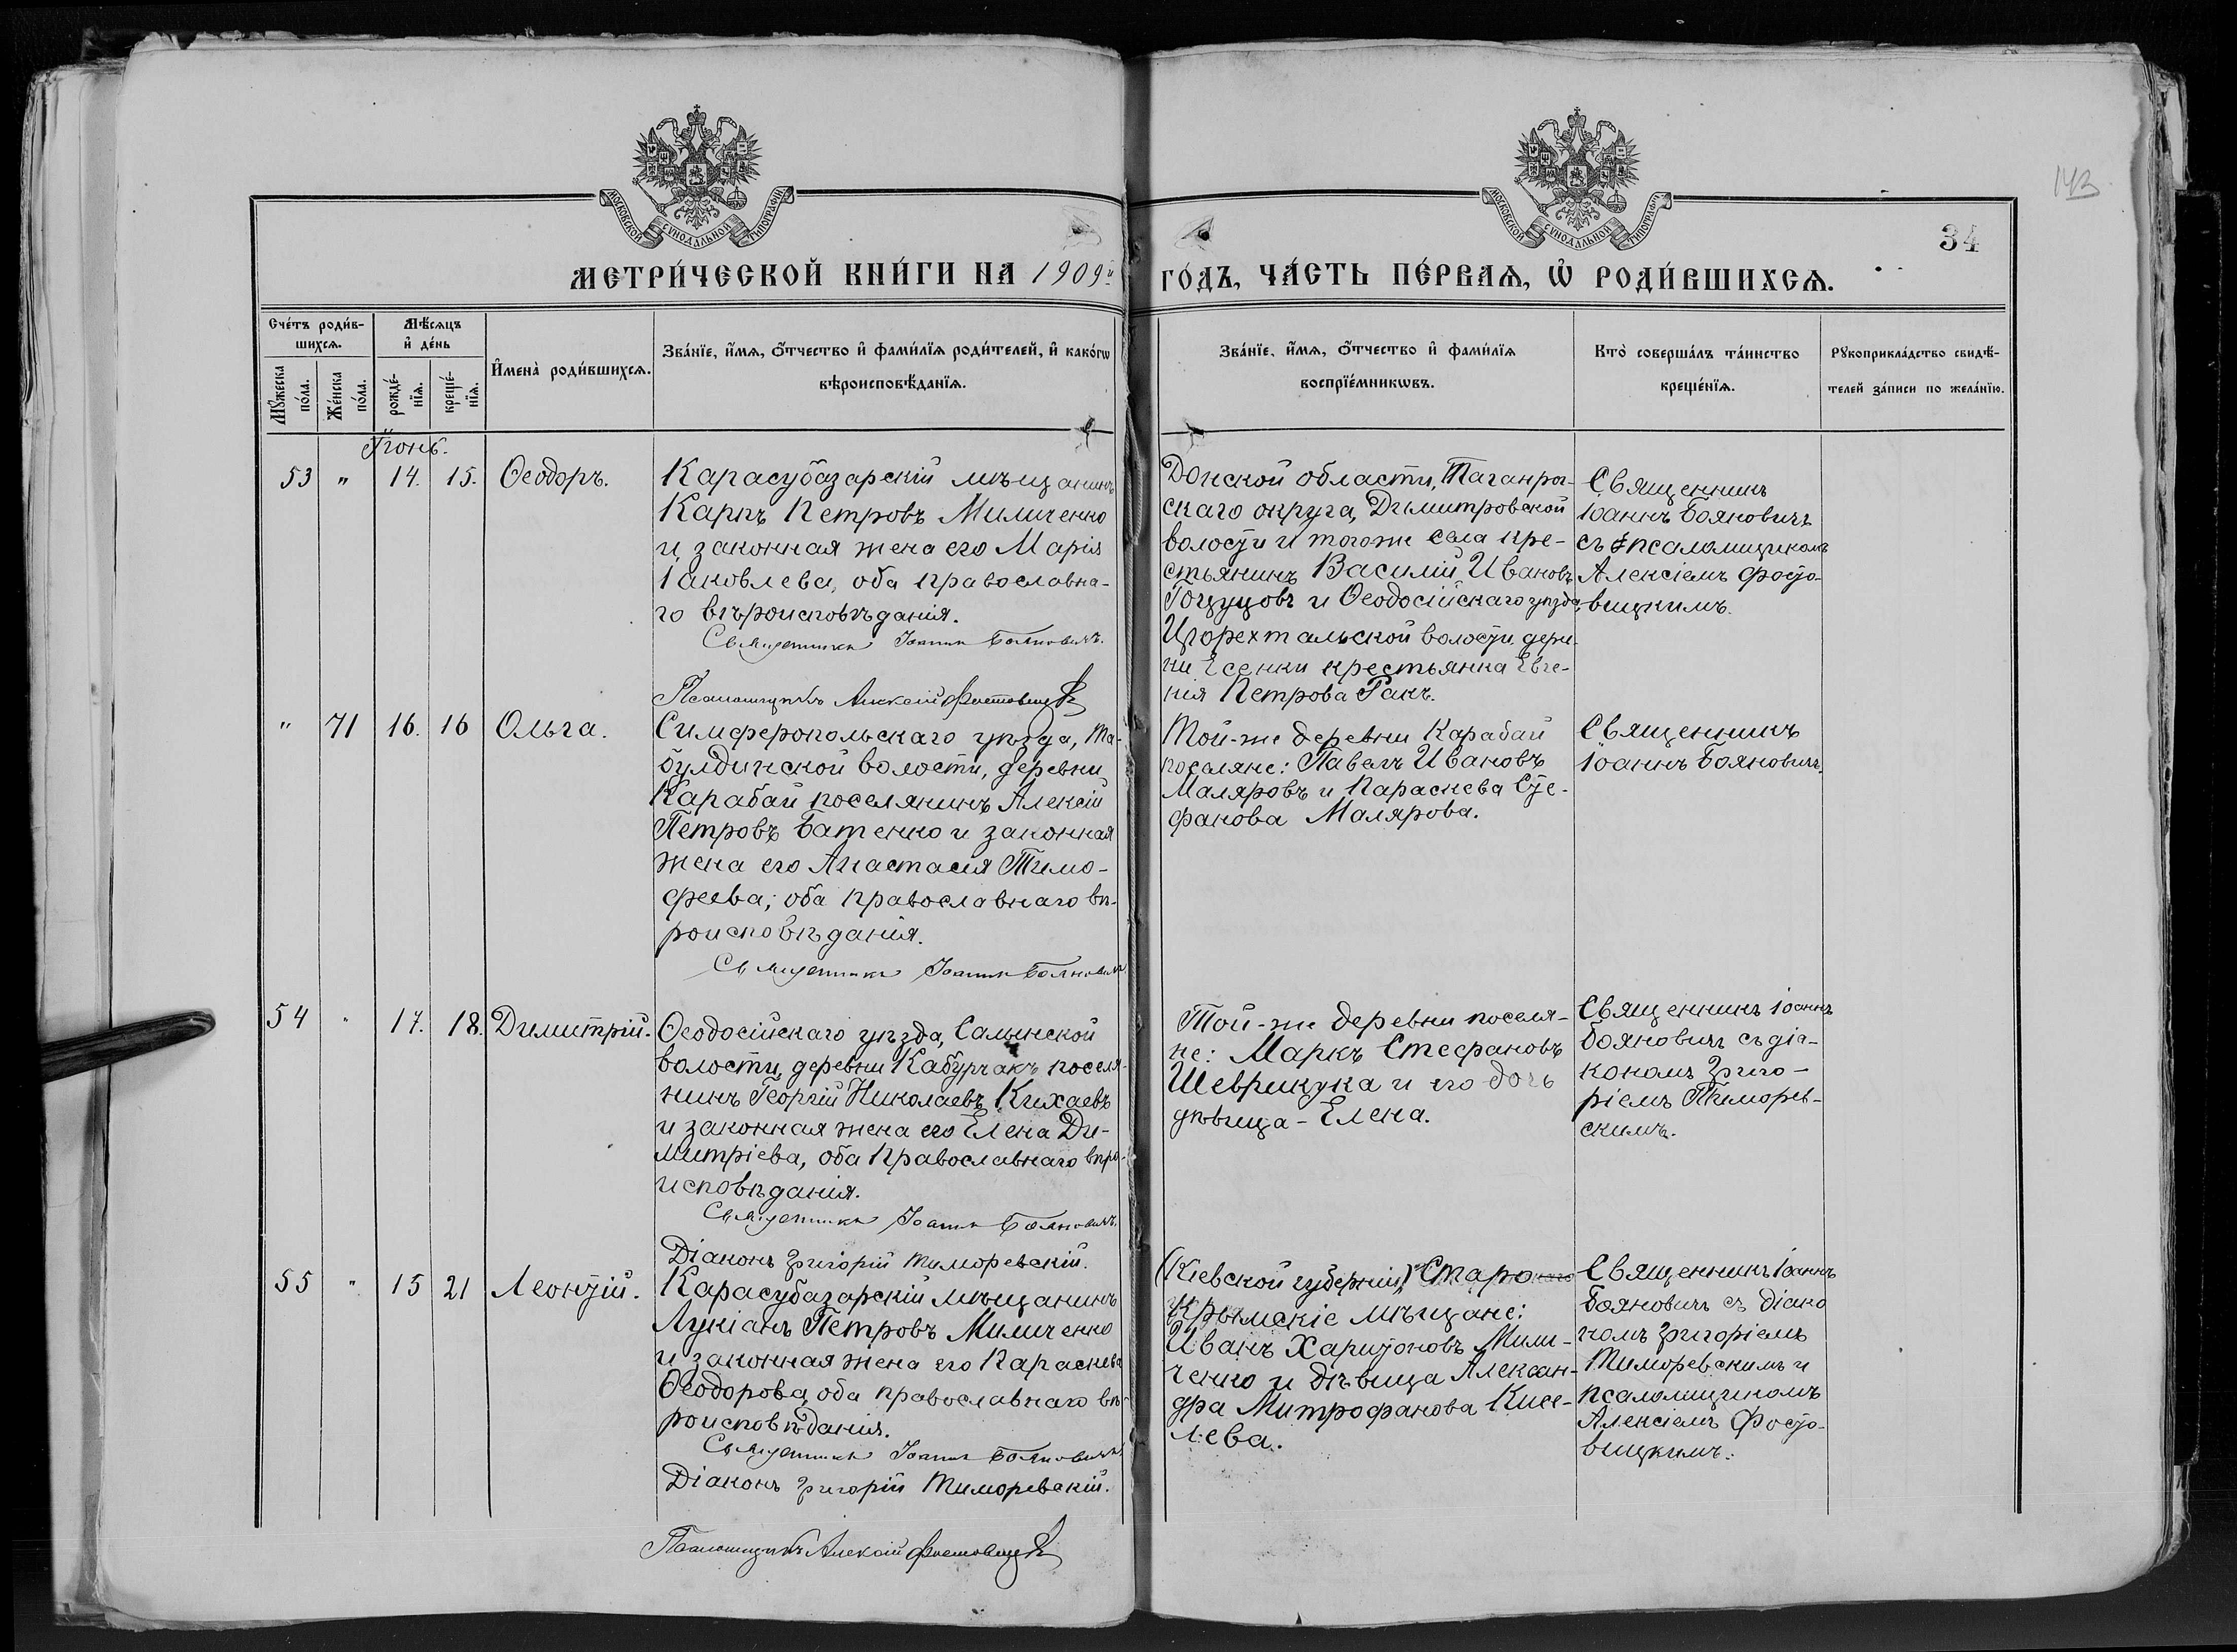 143
34
МОСКОВСКОЙ СѴНОДАЛЬНОЙ ТИПОГРАФІИ
МОСКОВСКОЙ СѴНОДАЛЬНОЙ ТИПОГРАФІИ
МЕТРИ́ЧЕСКОЙ КНИ́ГИ НА 1909й ГО́ДЪ, ЧА́СТЬ ПЕ́РВАѦ, Ѡ҆ РОДИ́ВШИХСѦ.
Сче́тъ роди́в-
шихсѧ.
Мꙋ́жеска по́ла.
Же́нска по́ла.
Мѣ́сѧцъ
и҆ де́нь
рожде́-
нїѧ.
креще́-
нїѧ.
И҆мена̀ роди́вшихсѧ.
Зва́нїе, и҆́мѧ, ѻ҆́тчество и҆ фами́лїѧ роди́телей, и҆ како́гѡ
вѣроисповѣ́данїѧ.
Зва́нїе, и҆́мѧ, ѻ҆́тчество и҆ фами́лїѧ
воспрїе́мникѡвъ.
Кто̀ соверша́лъ та́инство
креще́нїѧ.
Рꙋкоприкла́дство свидѣ́-
телей за́писи по жела́нїю.
Іюнь.
53 " 14. 15. Ѳеодоръ.
Карасубазарскій мѣщанинъ
Карпъ Петровъ Миличенко
и законная жена его Марія
Іаковлева, оба православна-
го вѣроисповѣданія.
Священникъ Іоаннъ Бояновичъ.
Псаломщикъ Алексій Фостовицкій
Донской области, Таганрог-
скаго округа, Димитровской
волости и того же села кре-
стьянинъ Василій Ивановъ
и Ѳеодосійскаго уѣзда,
волости, дерев-
ни крестьянка Евге-
нія Петрова Ракъ.
Священникъ
Іоаннъ Бояновичъ
съ псаломщикомъ
Алексіемъ Фосто-
вицкимъ.
" 71 16. 16 Ольга.
Симферопольскаго уѣзда, Та-
булдинской волости, деревни
Карабай поселянинъ Алексій
Петровъ Батенко и законная
жена его Анастасія Тимо-
феева; оба православнаго вѣ-
роисповѣданія.
Священникъ Іоаннъ Бояновичъ
Той-же деревни Карабай
поселяне: Павелъ Ивановъ
Маляровъ и Параскева Сте-
фанова Малярова.
Священникъ
Іоаннъ Бояновичъ.
54 " 17. 18. Димитрій.
Ѳеодосійскаго уѣзда, Салынской
волости, деревни Кабурчакъ поселя-
нинъ Георгій Николаевъ Кихаевъ
и законная жена его Елена Ди-
митріева, оба православнаго вѣро-
исповѣданія.
Священникъ Іоаннъ Бояновичъ.
Діаконъ Григорій Тиморевскій.
Той-же деревни поселя-
не: Маркъ Стефановъ
Шеврикука и его дочь
дѣвица - Елена.
Священникъ Іоаннъ
Бояновичъ съ діа-
кономъ Григо-
ріемъ Тиморев-
скимъ.
55 " 15 21 Леонтій.
Карасубазарскій мѣщанинъ
Лукіанъ Петровъ Миличенко
и законная жена его Параскева
Ѳеодорова, оба православнаго вѣ-
роисповѣданія.
Священникъ Іоаннъ Бояновичъ
Діаконъ Григорій Тиморевскій.
Псаломщикъ Алексій Фостовицкій
(Кіевской губерніи) Старо
Крымскіе мѣщане:
Иванъ Харитоновъ Мили-
ченко и дѣвица Алексан-
дра Митрофанова Кисе-
лева.
Священникъ Іоаннъ
Бояновичъ съ діако
номъ Григоріемъ
Тиморевскимъ и
псаломщикомъ
Алексіемъ Фосто-
вицкимъ.